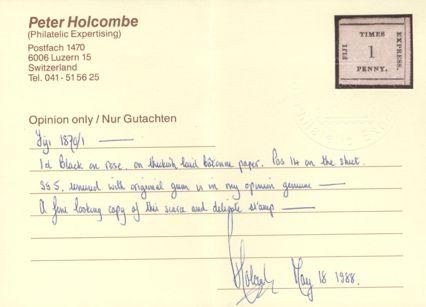 Peter Holcombe
(Philatelic Expertising)
Postfach 1470
6006 Luzern 15
Switzerland
Tel. 041 - 51 56 25
TIMES
FIJI
1
EXPRESS.
PENNY.
Opinion only / Nur Gutachten
Fiji 1870/1
1d Black on rose, on thickish laid bâtonné paper. Pos 14 on the sheet.
SG 5, unused with original gum is in my opinion genuine
A fine looking copy of this scarce and delicate stamp
Holcombe May 18 1988.